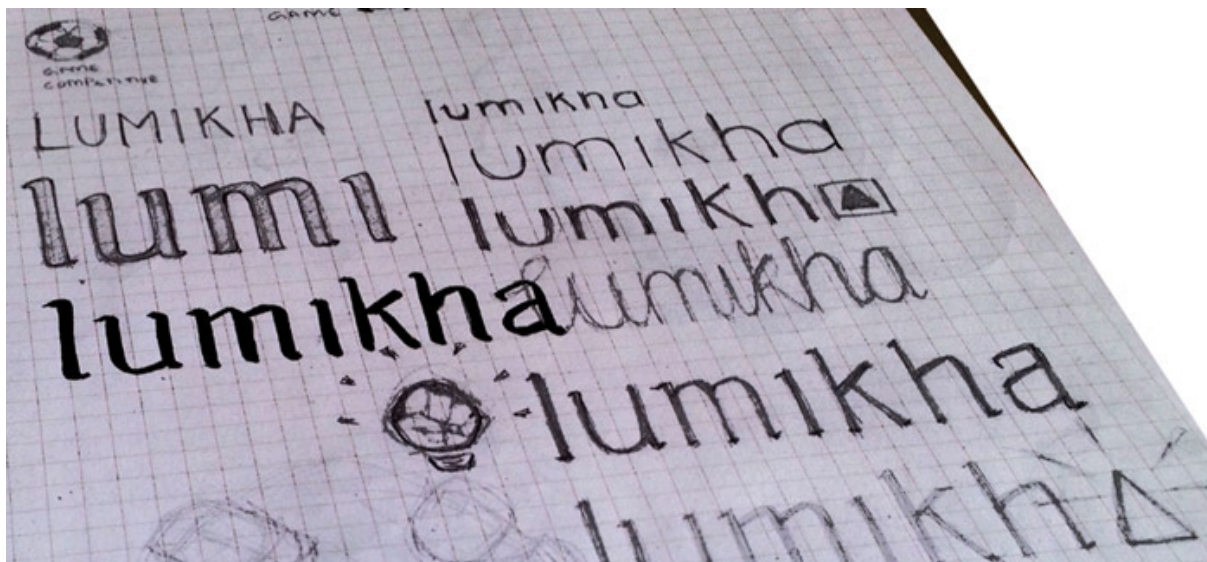 GAME
GAME
COMPETITIVE
LUMIKHA
lumi
lumikha
lumikha
lumikha
lumikh
lumikha
lumikha
lumikh